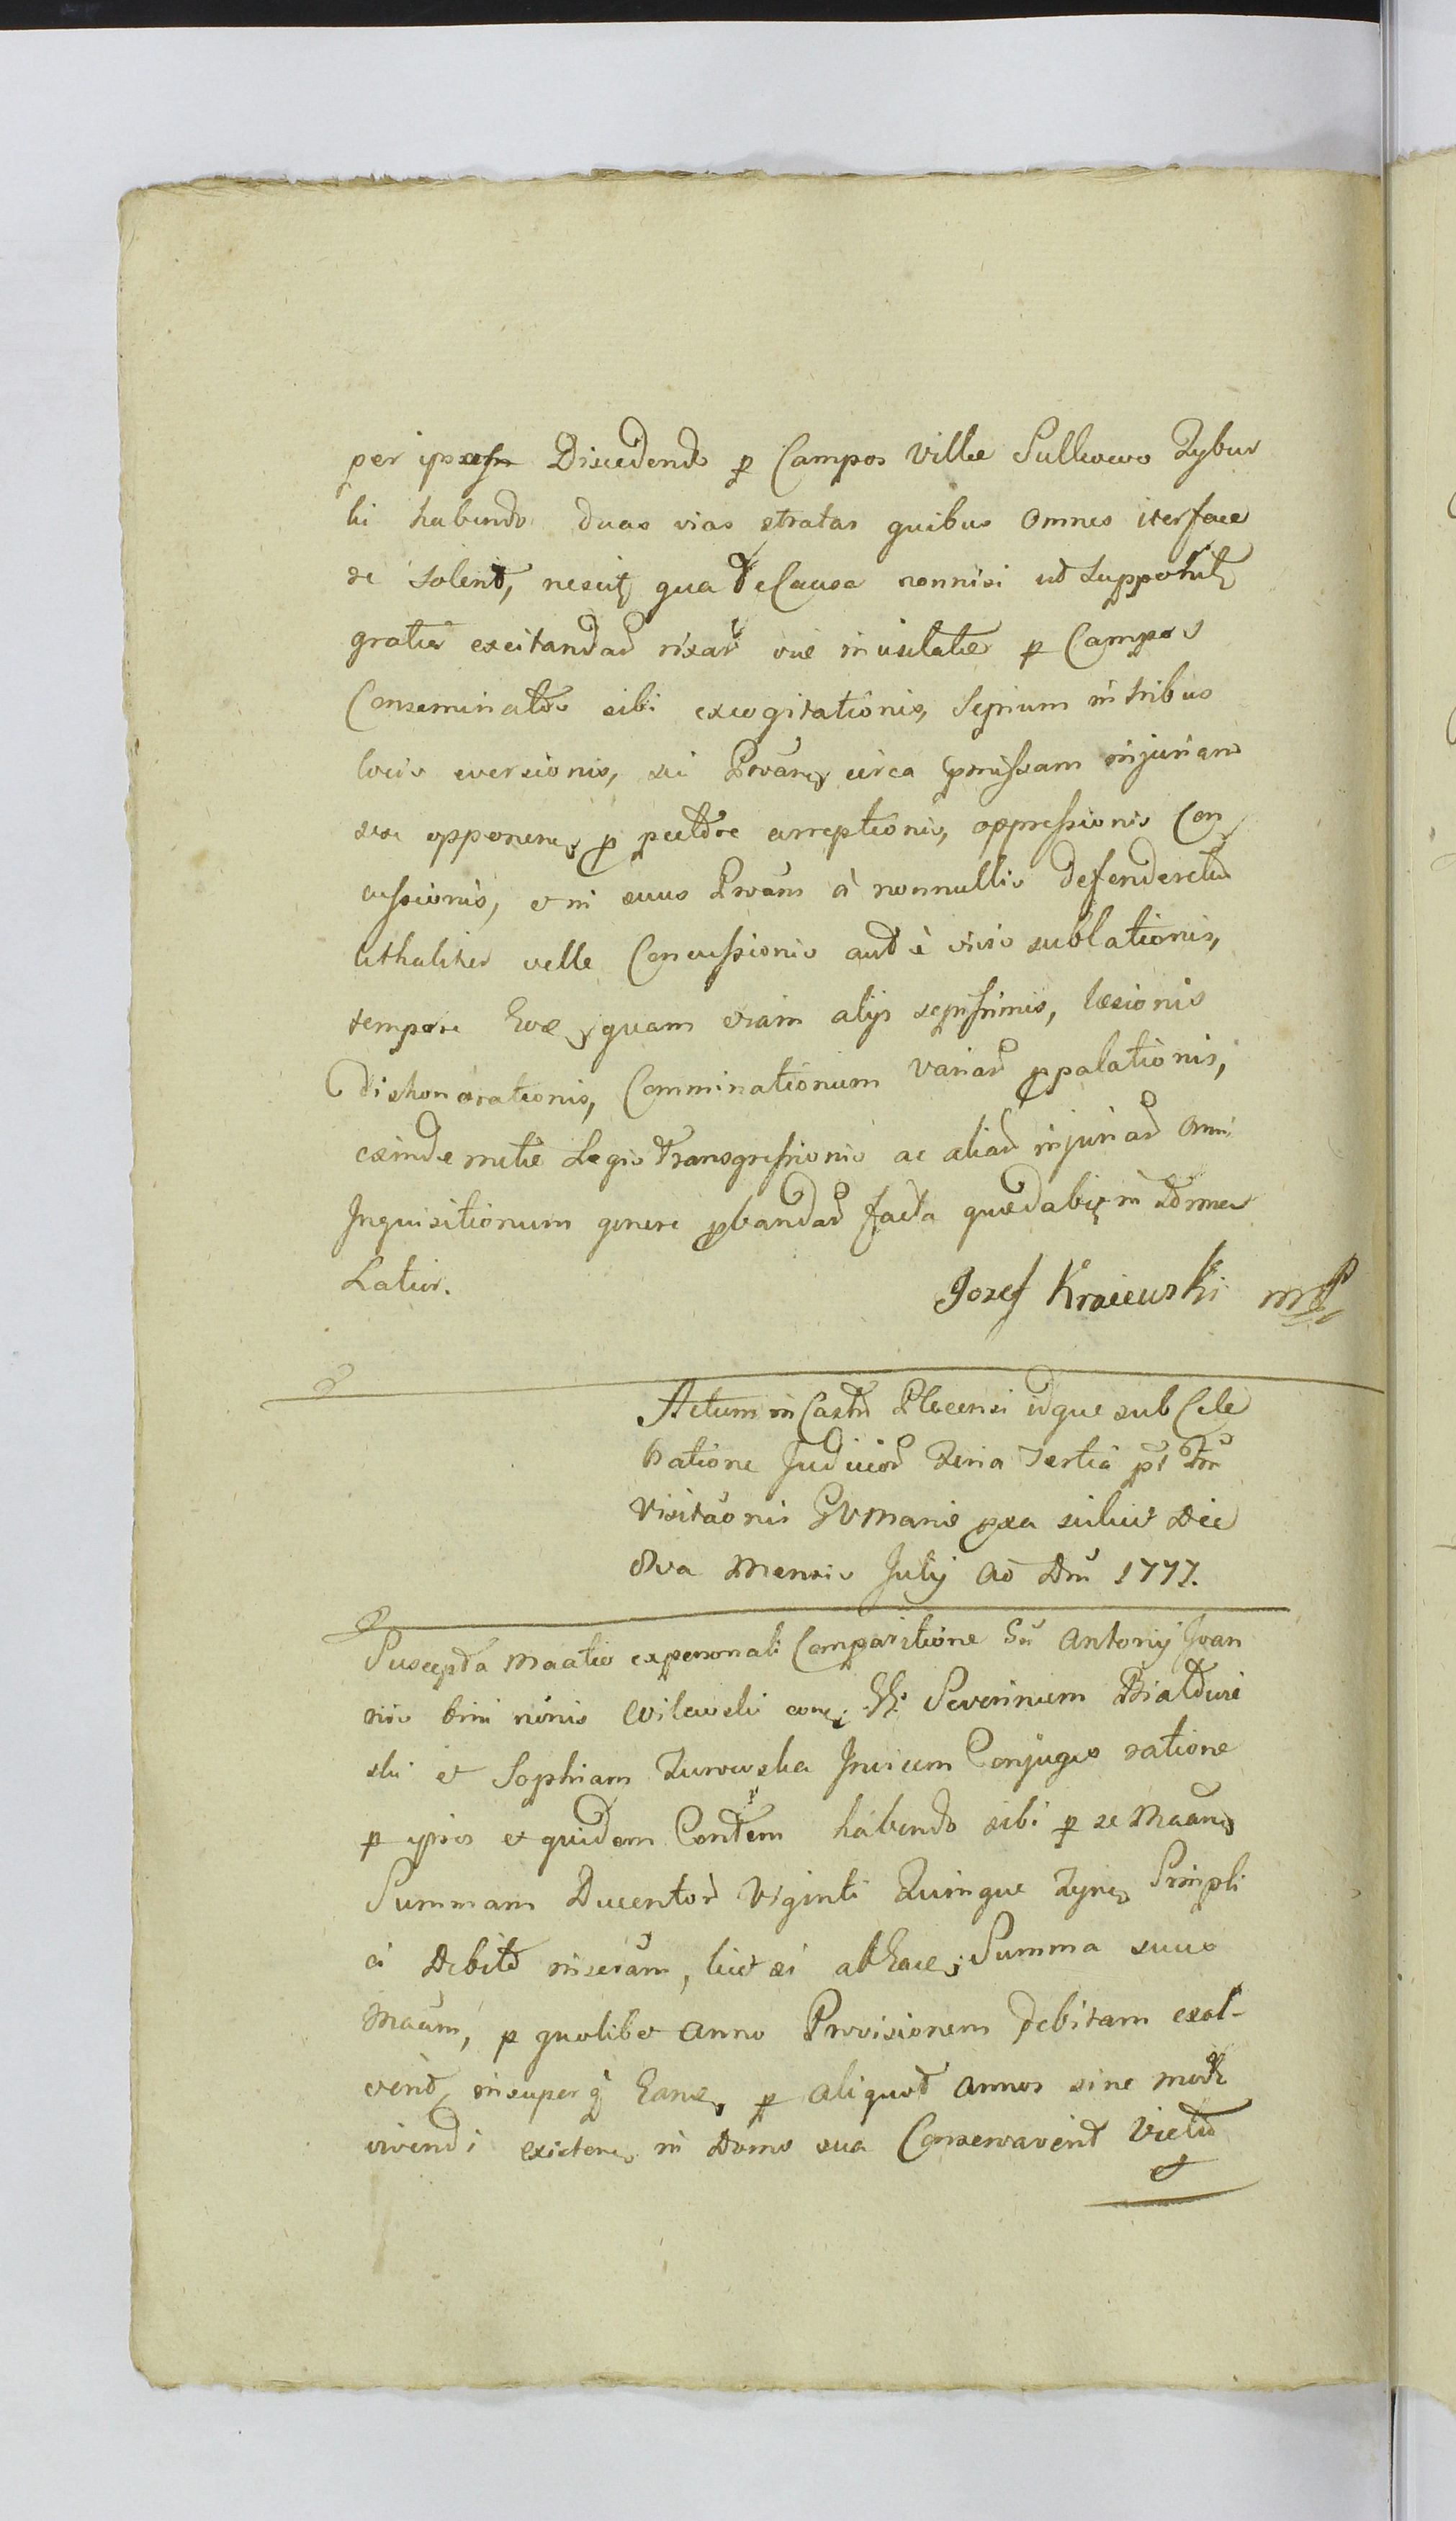 per ipsam Discedendo p Campos Villae Sulkowo Zybul
ki habendo duas vias stratas quibus omnes iter face
re solent, nescitz qua de Causa nonnisi ut supponitz
gratia excitandar rixar viae inusitatae p Campos
Conseminatos sibi excogitationis, Sepium in tribus
locis eversionis, sui Provan circa praemissam injuriam
sese opponen p pectore arreptionis, oppressionis Con
cussionis, et ni suus Provans à nonnullis defenderetur
lethaliter velle Concussionis aut è vivis sublationis,
tempore  quam etiam alijs sepissimis, laesionis
dishonorationis, Comminationum variar ppalationis,
exinde metae Legis transgressionis ac aliar injuriar omni
Inquisitionum genere pbandar facta quae dabitz in Terminer
Latius.
Jozef Kraiewski mp
Actum in Castro Plocensi idque sub Cele
bratione Judicior Feria Tertia pt Fm
Visitaonis BVMariae pxa scilicet Die
8va Mensis Julij Ao Dni 1777.
Suscepta Maatio expersonali Comparitione Gn Antonij Joan
nis bini nōnis Wilewski  Severinum Białdwi
ski et Sophiam Zurowska Invicem Conjuges ratione
p ipsos et quidem Contem habendo sibi p se Maan
Summam Ducentor Viginti Quinque Tynf Simpli
ci Debito inscram, licet ei ab hac Summa suus
Maans, p quolibet anno Provisionem debitam exol-
verit, insuper q Eand p aliquot annos sine modo
vivendi existen in Domo sua Conservaverit Victu
et